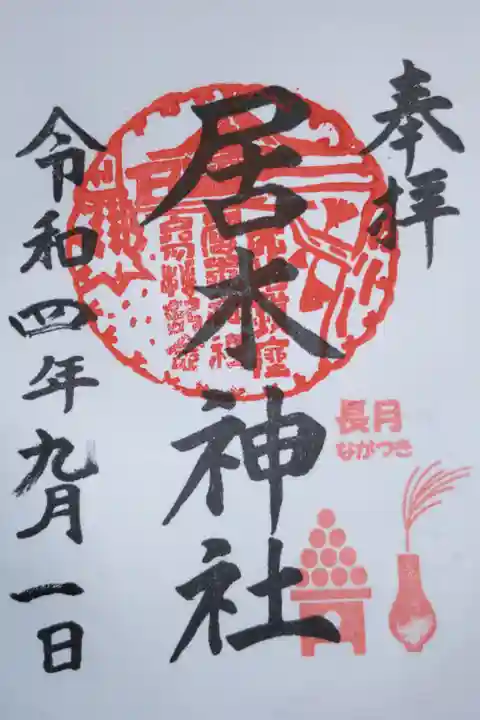 奉拝
居木神社
令和四年九月一日
長月
ながつき